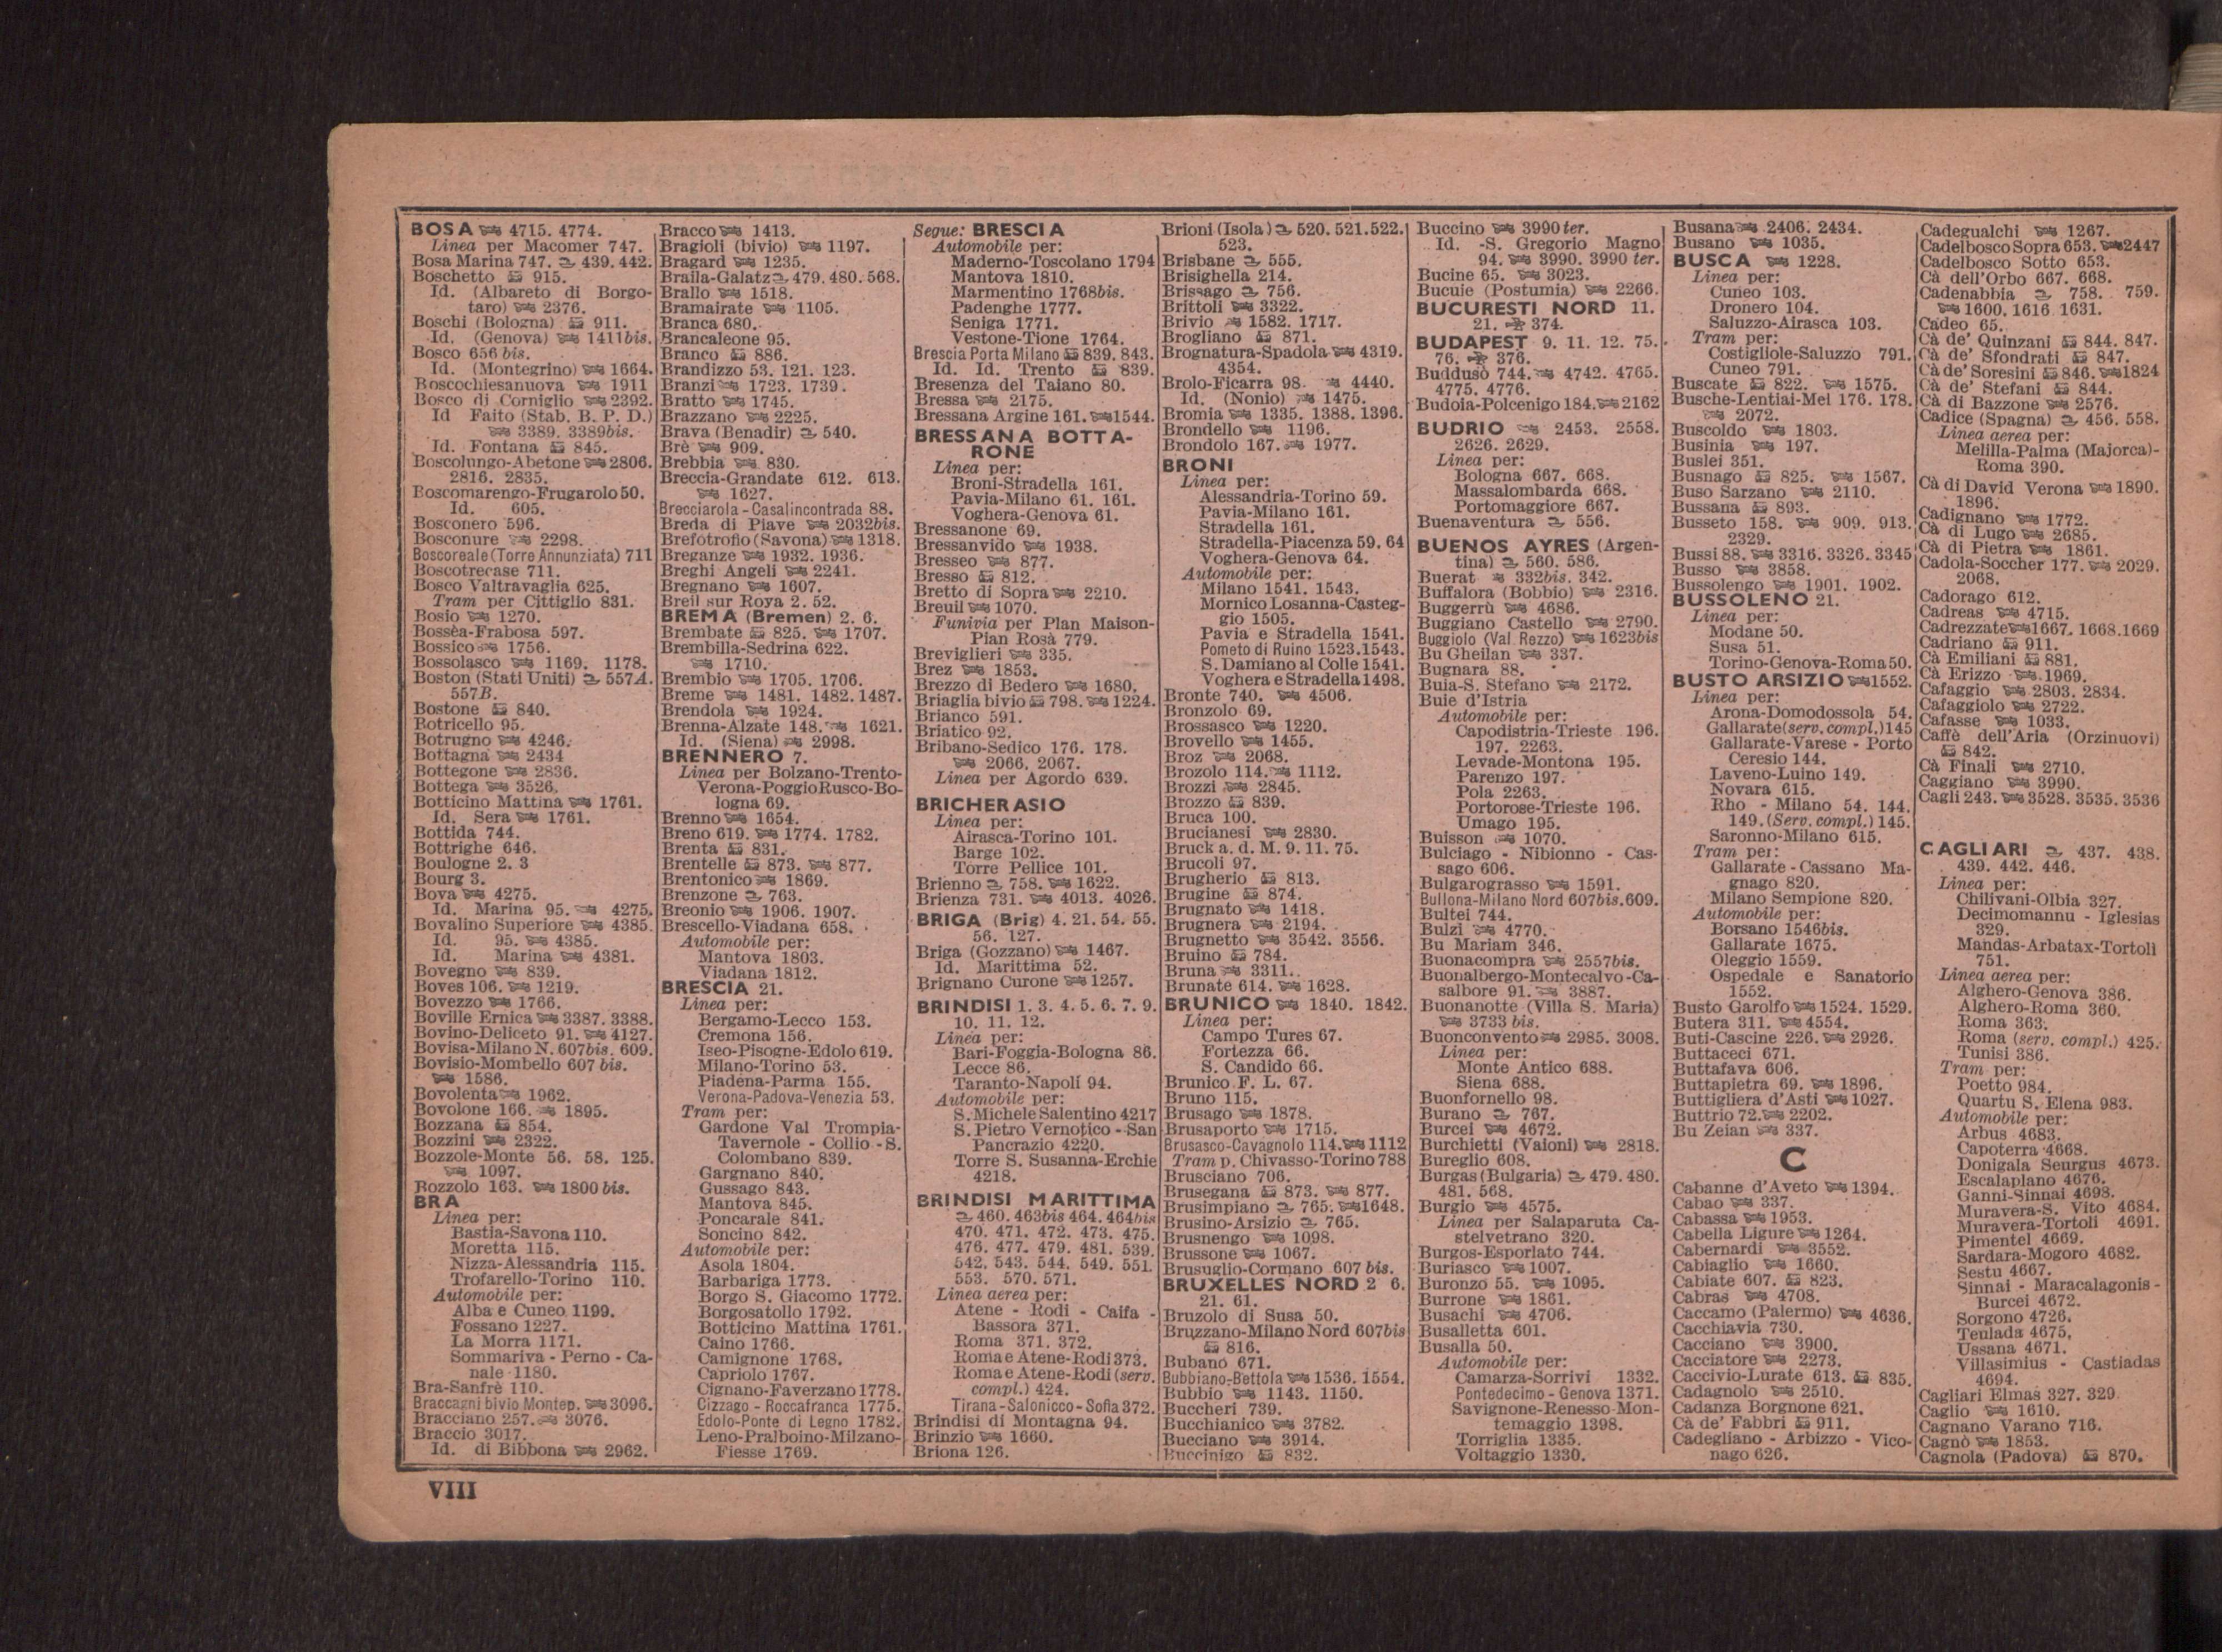 BOSA 4715. 4774.
Linea per Macomer 747.
Bosa Marina 747. 439. 442.
Boschetto 915.
Id. (Albareto di Borgo-
taro) 2376.
Boschi (Bologna) 911.
Id. (Genova) 1411bis.
Bosco 656 bis.
Id. (Montegrino) 1664.
Boscochiesanuova 1911
Bosco di Corniglio 2392.
Id Faito (Stab. B. P. D.)
3389. 3389bis.
Id. Fontana 845.
Boscolungo-Abetone 2806.
2816. 2835.
Boscomarengo-Frugarolo 50.
Id. 605.
Bosconero 596.
Bosconure 2298.
Boscoreale (Torre Annunziata) 711
Boscotrecase 711.
Bosco Valtravaglia 625.
Tram per Cittiglio 831.
Bosio 1270.
Bossèa-Frabosa 597.
Bossico 1756.
Bossolasco 1169. 1178.
Boston (Stati Uniti) 557A.
557B.
Bostone 840.
Botricello 95.
Botrugno 4246.
Bottagna 2434
Bottegone 2836.
Bottega 3526.
Botticino Mattina 1761.
Id. Sera 1761.
Bottida 744.
Bottrighe 646.
Boulogne 2. 3
Bourg 3.
Bova 4275.
Id. Marina 95. 4275.
Bovalino Superiore 4385.
Id. 95. 4385.
Id. Marina 4381.
Bovegno 839.
Boves 106. 1219.
Bovezzo 1766.
Boville Ernica 3387. 3388.
Bovino-Deliceto 91. 4127.
Bovisa-Milano N. 607bis. 609.
Bovisio-Mombello 607 bis.
1586.
Bovolenta 1962.
Bovolone 166. 1895.
Bozzana 854.
Bozzini 2322.
Bozzole-Monte 56. 58. 125.
1097.
Bozzolo 163. 1800 bis.
BRA
Linea per:
Bastia-Savona 110.
Moretta 115.
Nizza-Alessandria 115.
Trofarello-Torino 110.
Automobile per:
Alba e Cuneo 1199.
Fossano 1227.
La Morra 1171.
Sommariva - Perno - Ca-
nale 1180.
Bra-Sanfrè 110.
Braccagni bivio Montep. 3096.
Bracciano 257. 3076.
Braccio 3017.
Id. di Bibbona 2962.
Bracco 1413.
Bragioli (bivio) 1197.
Bragard 1235.
Braila-Galatz 479. 480. 568.
Brallo 1518.
Bramairate 1105.
Branca 680.
Brancaleone 95.
Branco 886.
Brandizzo 53. 121. 123.
Branzi 1723. 1739.
Bratto 1745.
Brazzano 2225.
Brava (Benadir) 540.
Brè 909.
Brebbia 830.
Breccia-Grandate 612. 613.
1627.
Brecciarola - Casalincontrada 88.
Breda di Piave 2032bis.
Brefotrofio (Savona) 1318.
Breganze 1932. 1936.
Breghi Angeli 2241.
Bregnano 1607.
Breil sur Roya 2. 52.
BREMA (Bremen) 2. 6.
Brembate 825. 1707.
Brembilla-Sedrina 622.
1710.
Brembio 1705. 1706.
Breme 1481. 1482. 1487.
Brendola 1924.
Brenna-Alzate 148. 1621.
Id. (Siena) 2998.
BRENNERO 7.
Linea per Bolzano-Trento-
Verona-Poggio Rusco-Bo-
logna 69.
Brenno 1654.
Breno 619. 1774. 1782.
Brenta 831.
Brentelle 873. 877.
Brentonico 1869.
Brenzone 763.
Breonio 1906. 1907.
Brescello-Viadana 658.
Automobile per:
Mantova 1803.
Viadana 1812.
BRESCIA 21.
Linea per:
Bergamo-Lecco 153.
Cremona 156.
Iseo-Pisogne-Edolo 619.
Milano-Torino 53.
Piadena-Parma 155.
Verona-Padova-Venezia 53.
Tram per:
Gardone Val Trompia-
Tavernole - Collio - S.
Colombano 839.
Gargnano 840.
Gussago 843.
Mantova 845.
Poncarale 841.
Soncino 842.
Automobile per:
Asola 1804.
Barbariga 1773.
Borgo S. Giacomo 1772.
Borgosatollo 1792.
Botticino Mattina 1761.
Caino 1766.
Camignone 1768.
Capriolo 1767.
Cignano-Faverzano 1778.
Cizzago - Roccafranca 1775.
Edolo-Ponte di Legno 1782.
Leno-Pralboino-Milzano-
Fiesse 1769.
Segue: BRESCIA
Automobile per:
Maderno-Toscolano 1794
Mantova 1810.
Marmentino 1768bis.
Padenghe 1777.
Seniga 1771.
Vestone-Tione 1764.
Brescia Porta Milano 839. 843.
Id. Id. Trento 839.
Bresenza del Taiano 80.
Bressa 2175.
Bressana Argine 161. 1544.
BRESSANA BOTTA-
RONE
Linea per:
Broni-Stradella 161.
Pavia-Milano 61. 161.
Voghera-Genova 61.
Bressanone 69.
Bressanvido 1938.
Bresseo 877.
Bresso 812.
Bretto di Sopra 2210.
Breuil 1070.
Funivia per Plan Maison-
Pian Rosà 779.
Breviglieri 335.
Brez 1853.
Brezzo di Bedero 1680.
Briaglia bivio 798. 1224.
Brianco 591.
Briatico 92.
Bribano-Sedico 176. 178.
2066. 2067.
Linea per Agordo 639.
BRICHERASIO
Linea per:
Airasca-Torino 101.
Barge 102.
Torre Pellice 101.
Brienno 758. 1622.
Brienza 731. 4013. 4026.
BRIGA (Brig) 4. 21. 54. 55.
56. 127.
Briga (Gozzano) 1467.
Id. Marittima 52.
Brignano Curone 1257.
BRINDISI 1. 3. 4. 5. 6. 7. 9.
10. 11. 12.
Linea per:
Bari-Foggia-Bologna 86.
Lecce 86.
Taranto-Napoli 94.
Automobile per:
S. Michele Salentino 4217
S. Pietro Vernotico - San
Pancrazio 4220.
Torre S. Susanna-Erchie
4218.
BRINDISI MARITTIMA
460. 463bis 464. 464bis
470. 471. 472. 473. 475.
476. 477. 479. 481. 539.
542. 543. 544. 549. 551.
553. 570. 571.
Linea aerea per:
Atene - Rodi - Caifa -
Bassora 371.
Roma 371. 372.
Roma e Atene-Rodi 373.
Roma e Atene-Rodi (serv.
compl.) 424.
Tirana-Salonicco-Sofia 372.
Brindisi di Montagna 94.
Brinzio 1660.
Briona 126.
Brioni (Isola) 520. 521. 522.
523.
Brisbane 555.
Brisighella 214.
Brissago 756.
Brittoli 3322.
Brivio 1582. 1717.
Brogliano 871.
Brognatura-Spadola 4319.
4354.
Brolo-Ficarra 98. 4440.
Id. (Nonio) 1475.
Bromia 1335. 1388. 1396.
Brondello 1196.
Brondolo 167. 1977.
BRONI
Linea per:
Alessandria-Torino 59.
Pavia-Milano 161.
Stradella 161.
Stradella-Piacenza 59. 64
Voghera-Genova 64.
Automobile per:
Milano 1541. 1543.
Mornico Losanna-Casteg-
gio 1505.
Pavia e Stradella 1541.
Pometo di Ruino 1523. 1543.
S. Damiano al Colle 1541.
Voghera e Stradella 1498.
Bronte 740. 4506.
Bronzolo 69.
Brossasco 1220.
Brovello 1455.
Broz 2068.
Brozolo 114. 1112.
Brozzi 2845.
Brozzo 839.
Bruca 100.
Brucianesi 2830.
Bruck a. d. M. 9. 11. 75.
Brucoli 97.
Brugherio 813.
Brugine 874.
Brugnato 1418.
Brugnera 2194.
Brugnetto 3542. 3556.
Bruino 784.
Bruna 3311.
Brunate 614. 1628.
BRUNICO 1840. 1842.
Linea per:
Campo Tures 67.
Fortezza 66.
S. Candido 66.
Brunico F. L. 67.
Bruno 115.
Brusago 1878.
Brusaporto 1715.
Brusasco-Cavagnolo 114. 1112
Tram p. Chivasso-Torino 788
Brusciano 706.
Brusegana 873. 877.
Brusimpiano 765. 1648.
Brusino-Arsizio 765.
Brusnengo 1098.
Brussone 1067.
Brusuglio-Cormano 607 bis.
BRUXELLES NORD 2 6.
21. 61.
Bruzolo di Susa 50.
Bruzzano-Milano Nord 607bis
816.
Bubano 671.
Bubbiano-Bettola 1536. 1554.
Bubbio 1143. 1150.
Buccheri 739.
Bucchianico 3782.
Bucciano 3914.
Buccinigo 832.
Buccino 3990 ter.
Id. -S. Gregorio Magno
94. 3990. 3990 ter.
Bucine 65. 3023.
Bucuie (Postumia) 2266.
BUCURESTI NORD 11.
21. 374.
BUDAPEST 9. 11. 12. 75.
76. 376.
Buddusò 744. 4742. 4765.
4775. 4776.
Budoia-Polcenigo 184. 2162
BUDRIO 2453. 2558.
2626. 2629.
Linea per:
Bologna 667. 668.
Massalombarda 668.
Portomaggiore 667.
Buenaventura 556.
BUENOS AYRES (Argen-
tina) 560. 586.
Buerat 332bis. 342.
Buffalora (Bobbio) 2316.
Buggerrù 4686.
Buggiano Castello 2790.
Buggiolo (Val Rezzo) 1623bis
Bu Gheilan 337.
Bugnara 88.
Buia-S. Stefano 2172.
Buie d'Istria
Automobile per:
Capodistria-Trieste 196.
197. 2263.
Levade-Montona 195.
Parenzo 197.
Pola 2263.
Portorose-Trieste 196.
Umago 195.
Buisson 1070.
Bulciago - Nibionno - Cas-
sago 606.
Bulgarograsso 1591.
Bullona-Milano Nord 607bis. 609.
Bultei 744.
Bulzi 4770.
Bu Mariam 346.
Buonacompra 2557bis.
Buonalbergo-Montecalvo-Ca-
salbore 91. 3887.
Buonanotte (Villa S. Maria)
3733 bis.
Buonconvento 2985. 3008.
Linea per:
Monte Antico 688.
Siena 688.
Buonfornello 98.
Burano 767.
Burcei 4672.
Burchietti (Vaioni) 2818.
Bureglio 608.
Burgas (Bulgaria) 479. 480.
481. 568.
Burgio 4575.
Linea per Salaparuta Ca-
stelvetrano 320.
Burgos-Esporlato 744.
Buriasco 1007.
Buronzo 55. 1095.
Burrone 1861.
Busachi 4706.
Busalletta 601.
Busalla 50.
Automobile per:
Camarza-Sorrivi 1332.
Pontedecimo - Genova 1371.
Savignone-Renesso-Mon-
temaggio 1398.
Torriglia 1335.
Voltaggio 1330.
Busana 2406. 2434.
Busano 1035.
BUSCA 1228.
Linea per:
Cuneo 103.
Dronero 104.
Saluzzo-Airasca 103.
Tram per:
Costigliole-Saluzzo 791.
Cuneo 791.
Buscate 822. 1575.
Busche-Lentiai-Mel 176. 178.
2072.
Buscoldo 1803.
Businia 197.
Buslei 351.
Busnago 825. 1567.
Buso Sarzano 2110.
Bussana 893.
Busseto 158. 909. 913.
2329.
Bussi 88. 3316. 3326. 3345
Busso 3858.
Bussolengo 1901. 1902.
BUSSOLENO 21.
Linea per:
Modane 50.
Susa 51.
Torino-Genova-Roma 50.
BUSTO ARSIZIO 1552.
Linea per:
Arona-Domodossola 54.
Gallarate (serv. compl.) 145
Gallarate-Varese - Porto
Ceresio 144.
Laveno-Luino 149.
Novara 615.
Rho - Milano 54. 144.
149. (Serv. compl.) 145.
Saronno-Milano 615.
Tram per:
Gallarate - Cassano Ma-
gnago 820.
Milano Sempione 820.
Automobile per:
Borsano 1546bis.
Gallarate 1675.
Oleggio 1559.
Ospedale e Sanatorio
1552.
Busto Garolfo 1524. 1529.
Butera 311. 4554.
Buti-Cascine 226. 2926.
Buttaceci 671.
Buttafava 606.
Buttapietra 69. 1896.
Buttigliera d'Asti 1027.
Buttrio 72. 2202.
Bu Zeian 337.
C
Cabanne d'Aveto 1394.
Cabao 337.
Cabassa 1953.
Cabella Ligure 1264.
Cabernardi 3552.
Cabiaglio 1660.
Cabiate 607. 823.
Cabras 4708.
Caccamo (Palermo) 4636.
Cacchiavia 730.
Cacciano 3900.
Cacciatore 2273.
Caccivio-Lurate 613. 835.
Cadagnolo 2510.
Cadanza Borgnone 621.
Cà de' Fabbri 911.
Cadegliano - Arbizzo - Vico-
nago 626.
Cadegualchi 1267.
Cadelbosco Sopra 653. 2447
Cadelbosco Sotto 653.
Cà dell'Orbo 667. 668.
Cadenabbia 758. 759.
1600. 1616 1631.
Cadeo 65.
Cà de' Quinzani 844. 847.
Cà de' Sfondrati 847.
Cà de' Soresini 846. 1824
Cà de' Stefani 844.
Cà di Bazzone 2576.
Cadice (Spagna) 456. 558.
Linea aerea per:
Melilla-Palma (Majorca)-
Roma 390.
Cà di David Verona 1890.
1896.
Cadignano 1772.
Cà di Lugo 2685.
Cà di Pietra 1861.
Cadola-Soccher 177. 2029.
2068.
Cadorago 612.
Cadreas 4715.
Cadrezzate 1667. 1668. 1669
Cadriano 911.
Cà Emiliani 881.
Cà Erizzo 1969.
Cafaggio 2803. 2834.
Cafaggiolo 2722.
Cafasse 1033.
Caffè dell'Aria (Orzinuovi)
842.
Cà Finali 2710.
Caggiano 3990.
Cagli 243. 3528. 3535. 3536
CAGLIARI 437. 438.
439. 442. 446.
Linea per:
Chilivani-Olbia 327.
Decimomannu - Iglesias
329.
Mandas-Arbatax-Tortolì
751.
Linea aerea per:
Alghero-Genova 386.
Alghero-Roma 360.
Roma 363.
Roma (serv. compl.) 425.
Tunisi 386.
Tram per:
Poetto 984.
Quartu S. Elena 983.
Automobile per:
Arbus 4683.
Capoterra 4668.
Donigala Seurgus 4673.
Escalaplano 4676.
Ganni-Sinnai 4698.
Muravera-S. Vito 4684.
Muravera-Tortolì 4691.
Pimentel 4669.
Sardara-Mogoro 4682.
Sestu 4667.
Sinnai - Maracalagonis -
Burcei 4672.
Sorgono 4726.
Teulada 4675.
Ussana 4671.
Villasimius - Castiadas
4694.
Cagliari Elmas 327. 329.
Caglio 1610.
Cagnano Varano 716.
Cagnò 1853.
Cagnola (Padova) 870.
VIII